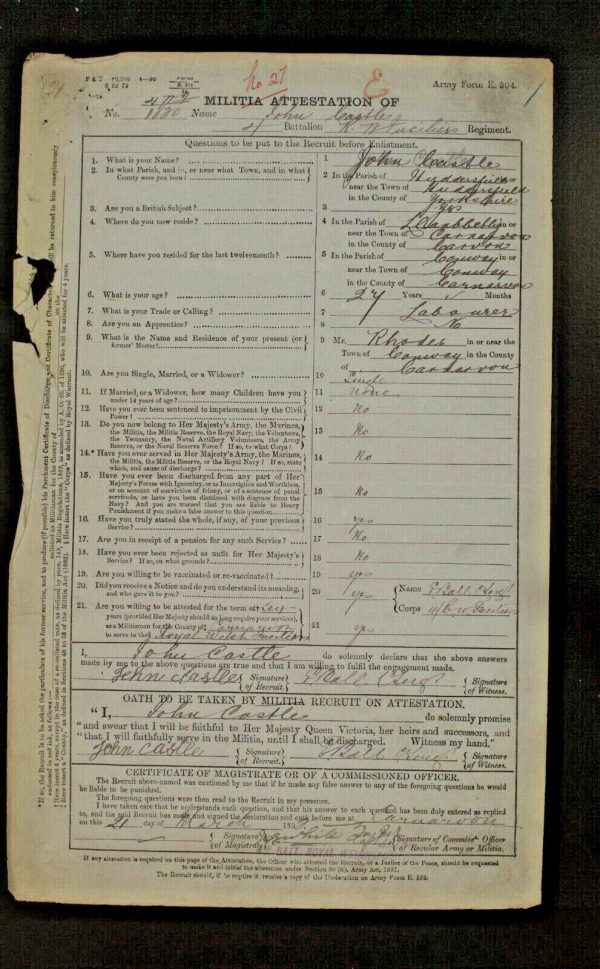 No 27
E
Army Form E. 504.
MILITIA ATTESTATION OF
No. 1880 Name John Castle
4 Battalion R W Fusiliers Regiment.
Questions to be put to the Recruit before Enlistment.
1. What is your Name? 1 John Castle
2. In what Parish, and in, or near what Town, and in what County were you born? 2 In the Parish of Huddersfield in or
near the Town of Huddersfield
in the County of Yorkshire
3. Are you a British Subject? 3 Yes
4. Where do you now reside? 4 In the Parish of in or
near the Town of Carnarvon
in the County of Carvon
5. Where have you resided for the last twelvemonth? 5 In the Parish of Conway in or
near the Town of Conway
in the County of Carnarvon
6. What is your age? 6 27 Years Months
7. What is your Trade or Calling? 7 Labourer
8. Are you an Apprentice? 8 No
9. What is the Name and Residence of your present (or former Master? 9 Mr. Rhodes in or near the
Town of Conway in the County
of Carnarvon
10. Are you Single, Married, or a Widower? 10 Single
11. If Married, or a Widower, how many Children have you under 14 years of age? 11 none
12. Have you ever been sentenced to imprisonment by the Civil Power? 12 No
13. Do you now belong to Her Majesty's Army, the Marines, the Militia, the Militia Reserve, the Royal Navy, the Volunteers, the Yeomanry, the Naval Artillery Volunteers, the Army Reserve, or the Naval Reserve Force? If so, to what Corps? 13 No
14.* Have you ever served in Her Majesty's Army, the Marines, the Militia, the Militia Reserve, or the Royal Navy? If so, state which, and cause of discharge? 14 No
15. Have you ever been discharged from any part of Her Majesty's Forces with Ignominy, or as Incorrigible and Worthless, or on account of conviction of felony, or of a sentence of penal servitude, or have you been dismissed with disgrace from the Navy? And if you are warned that you are liable to Heavy Punishment if you make a false answer to this question 15 No
16. Have you truly stated the whole, if any, of your previous Service? 16 yes
17. Are you in receipt of a pension for any such Service? 17 No
18. Have you ever been rejected as unfit for Her Majesty's Service? If so, on what grounds? 18 No
19. Are you willing to be vaccinated or re-vaccinated? 19 yes
20. Did you receive a Notice and do you understand its meaning, and who gave it to you? 20 yes Name
Corps
21. Are you willing to be attested for the term of Six
years (provided Her Majesty should so long require your services),
as a Militiaman for the County of Carnarvon
to serve in the Royal Welsh Fusiliers 21 yes
I, John Castle do solemnly declare that the above answers
made by me to the above questions are true and that I am willing to fulfil the engagement made.
John Castle Signature of Recruit. Signature of Witness.
OATH TO BE TAKEN BY MILITIA RECRUIT ON ATTESTATION.
"I, John Castle do solemnly promise
"and swear that I will be faithful to Her Majesty Queen Victoria, her heirs and successors, and
"that I will faithfully serve in the Militia, until I shall be discharged. Witness my hand."
John Castle Signature of Recruit. Signature of Witness.
CERTIFICATE OF MAGISTRATE OR OF A COMMISSIONED OFFICER.
The Recruit above-named was cautioned by me that if he made any false answer to any of the foregoing questions he would
be liable to be punished.
The foregoing questions were then read to the Recruit in my presence.
I have taken care that he understands each question, and that his answer to each question has been duly entered as replied
to, and the said Recruit has made and signed the declaration and oath before me at Carnarvon
on this 21 day of March 189
Signature of Magistrate Signature of Commiss. Officer of Regular Army or Militia.
BATT ROYAL
If any alteration is required on this page of the Attestation, the Officer who attested the Recruit, or a Justice of the Peace, should be requested
to make it and initial the alteration under Section 80 (6), Army Act, 1881.
The Recruit should, if he require it, receive a copy of the Declaration on Army Form E. 593.